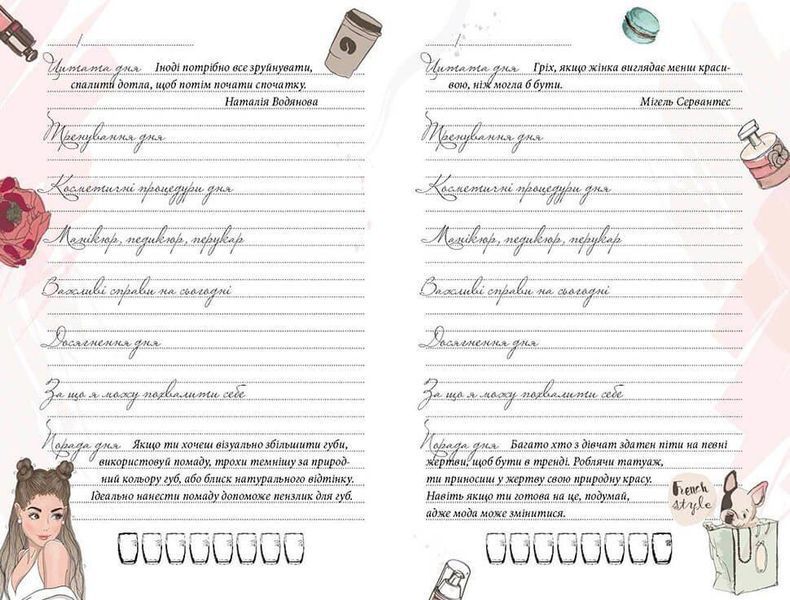 /
Цитата дня Іноді потрібно все зруйнувати,
спалити дотла, щоб потім почати спочатку.
Наталія Водянова
Тренування дня
Косметичні процедури дня
Манікюр, педикюр, перукар
Важливі справи на сьогодні
Досягнення дня
За що я можу похвалити себе
Порада дня Якщо ти хочеш візуально збільшити губи,
використовуй помаду, трохи темнішу за природ-
ний кольору губ, або блиск натурального відтінку.
Ідеально нанести помаду допоможе пензлик для губ.
/
Цитата дня Гріх, якщо жінка виглядає менш краси-
вою, ніж могла б бути.
Мігель Сервантес
Тренування дня
Косметичні процедури дня
Манікюр, педикюр, перукар
Важливі справи на сьогодні
Досягнення дня
За що я можу похвалити себе
Порада дня Багато хто з дівчат здатен піти на певні
жертви, щоб бути в тренді. Роблячи татуаж,
ти приносиш у жертву свою природну красу.
Навіть якщо ти готова на це, подумай,
адже мода може змінитися.
French
style